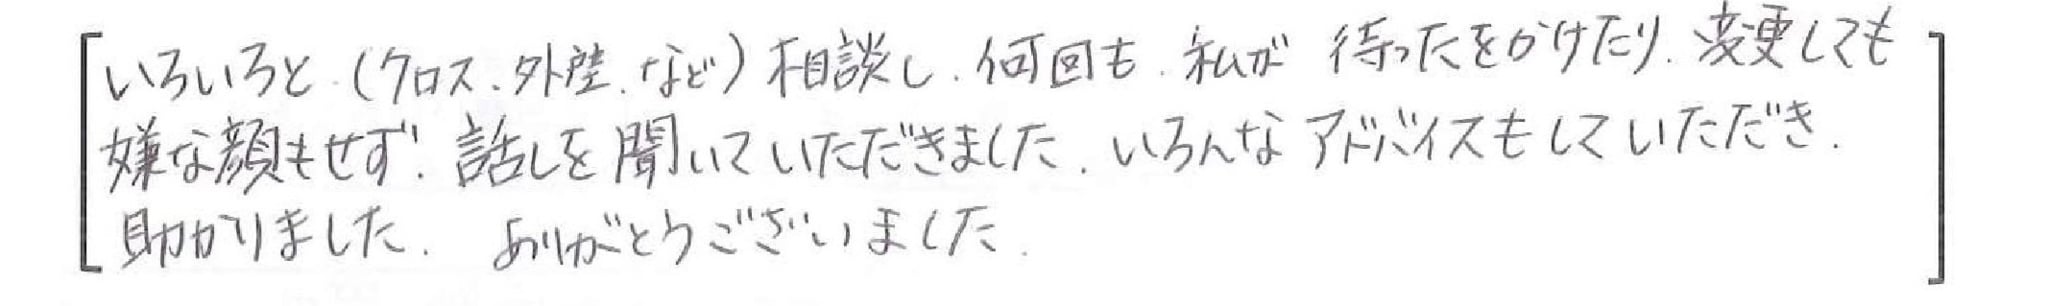 いろいろと(クロス、外壁、など)相談し、何回も、私が 待ったをかけたり、変更しても
嫌な顔もせず、話しを聞いていただきました。いろんなアドバイスもしていただき、
助かりました。 ありがとうございました。